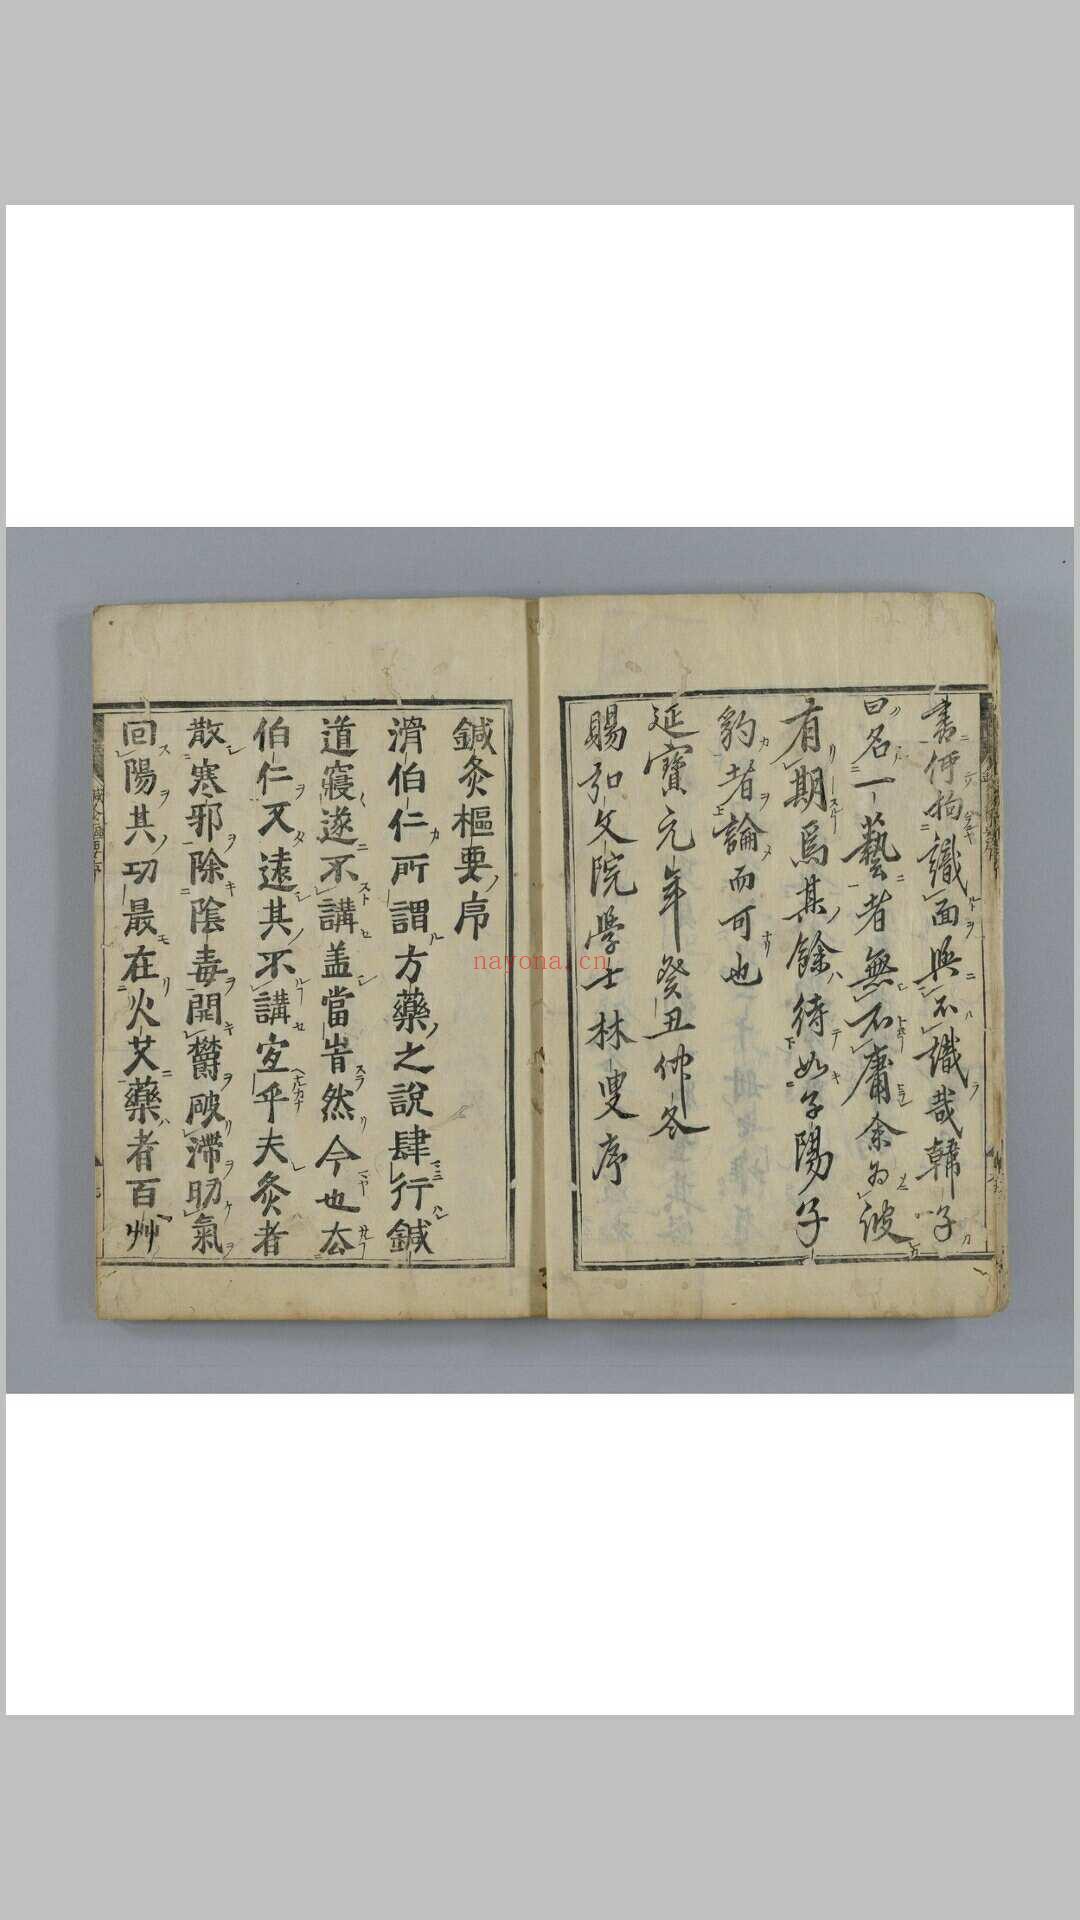 書何拘識面與不識哉韓子
曰名一藝者無不庸余為彼
有期焉其餘待如子陽子
豹者論而可也
延寶元年癸丑仲冬
賜弘文院學士林叟序
鍼灸樞要序
滑伯仁所謂方藥之說肆行鍼
道寢遂不講盖當時然今也厺
伯仁又遠其不講宜乎夫灸者
散寒邪除陰毒開欝破滯助氣
回陽其功最在火艾藥者百艸
nayona.cn